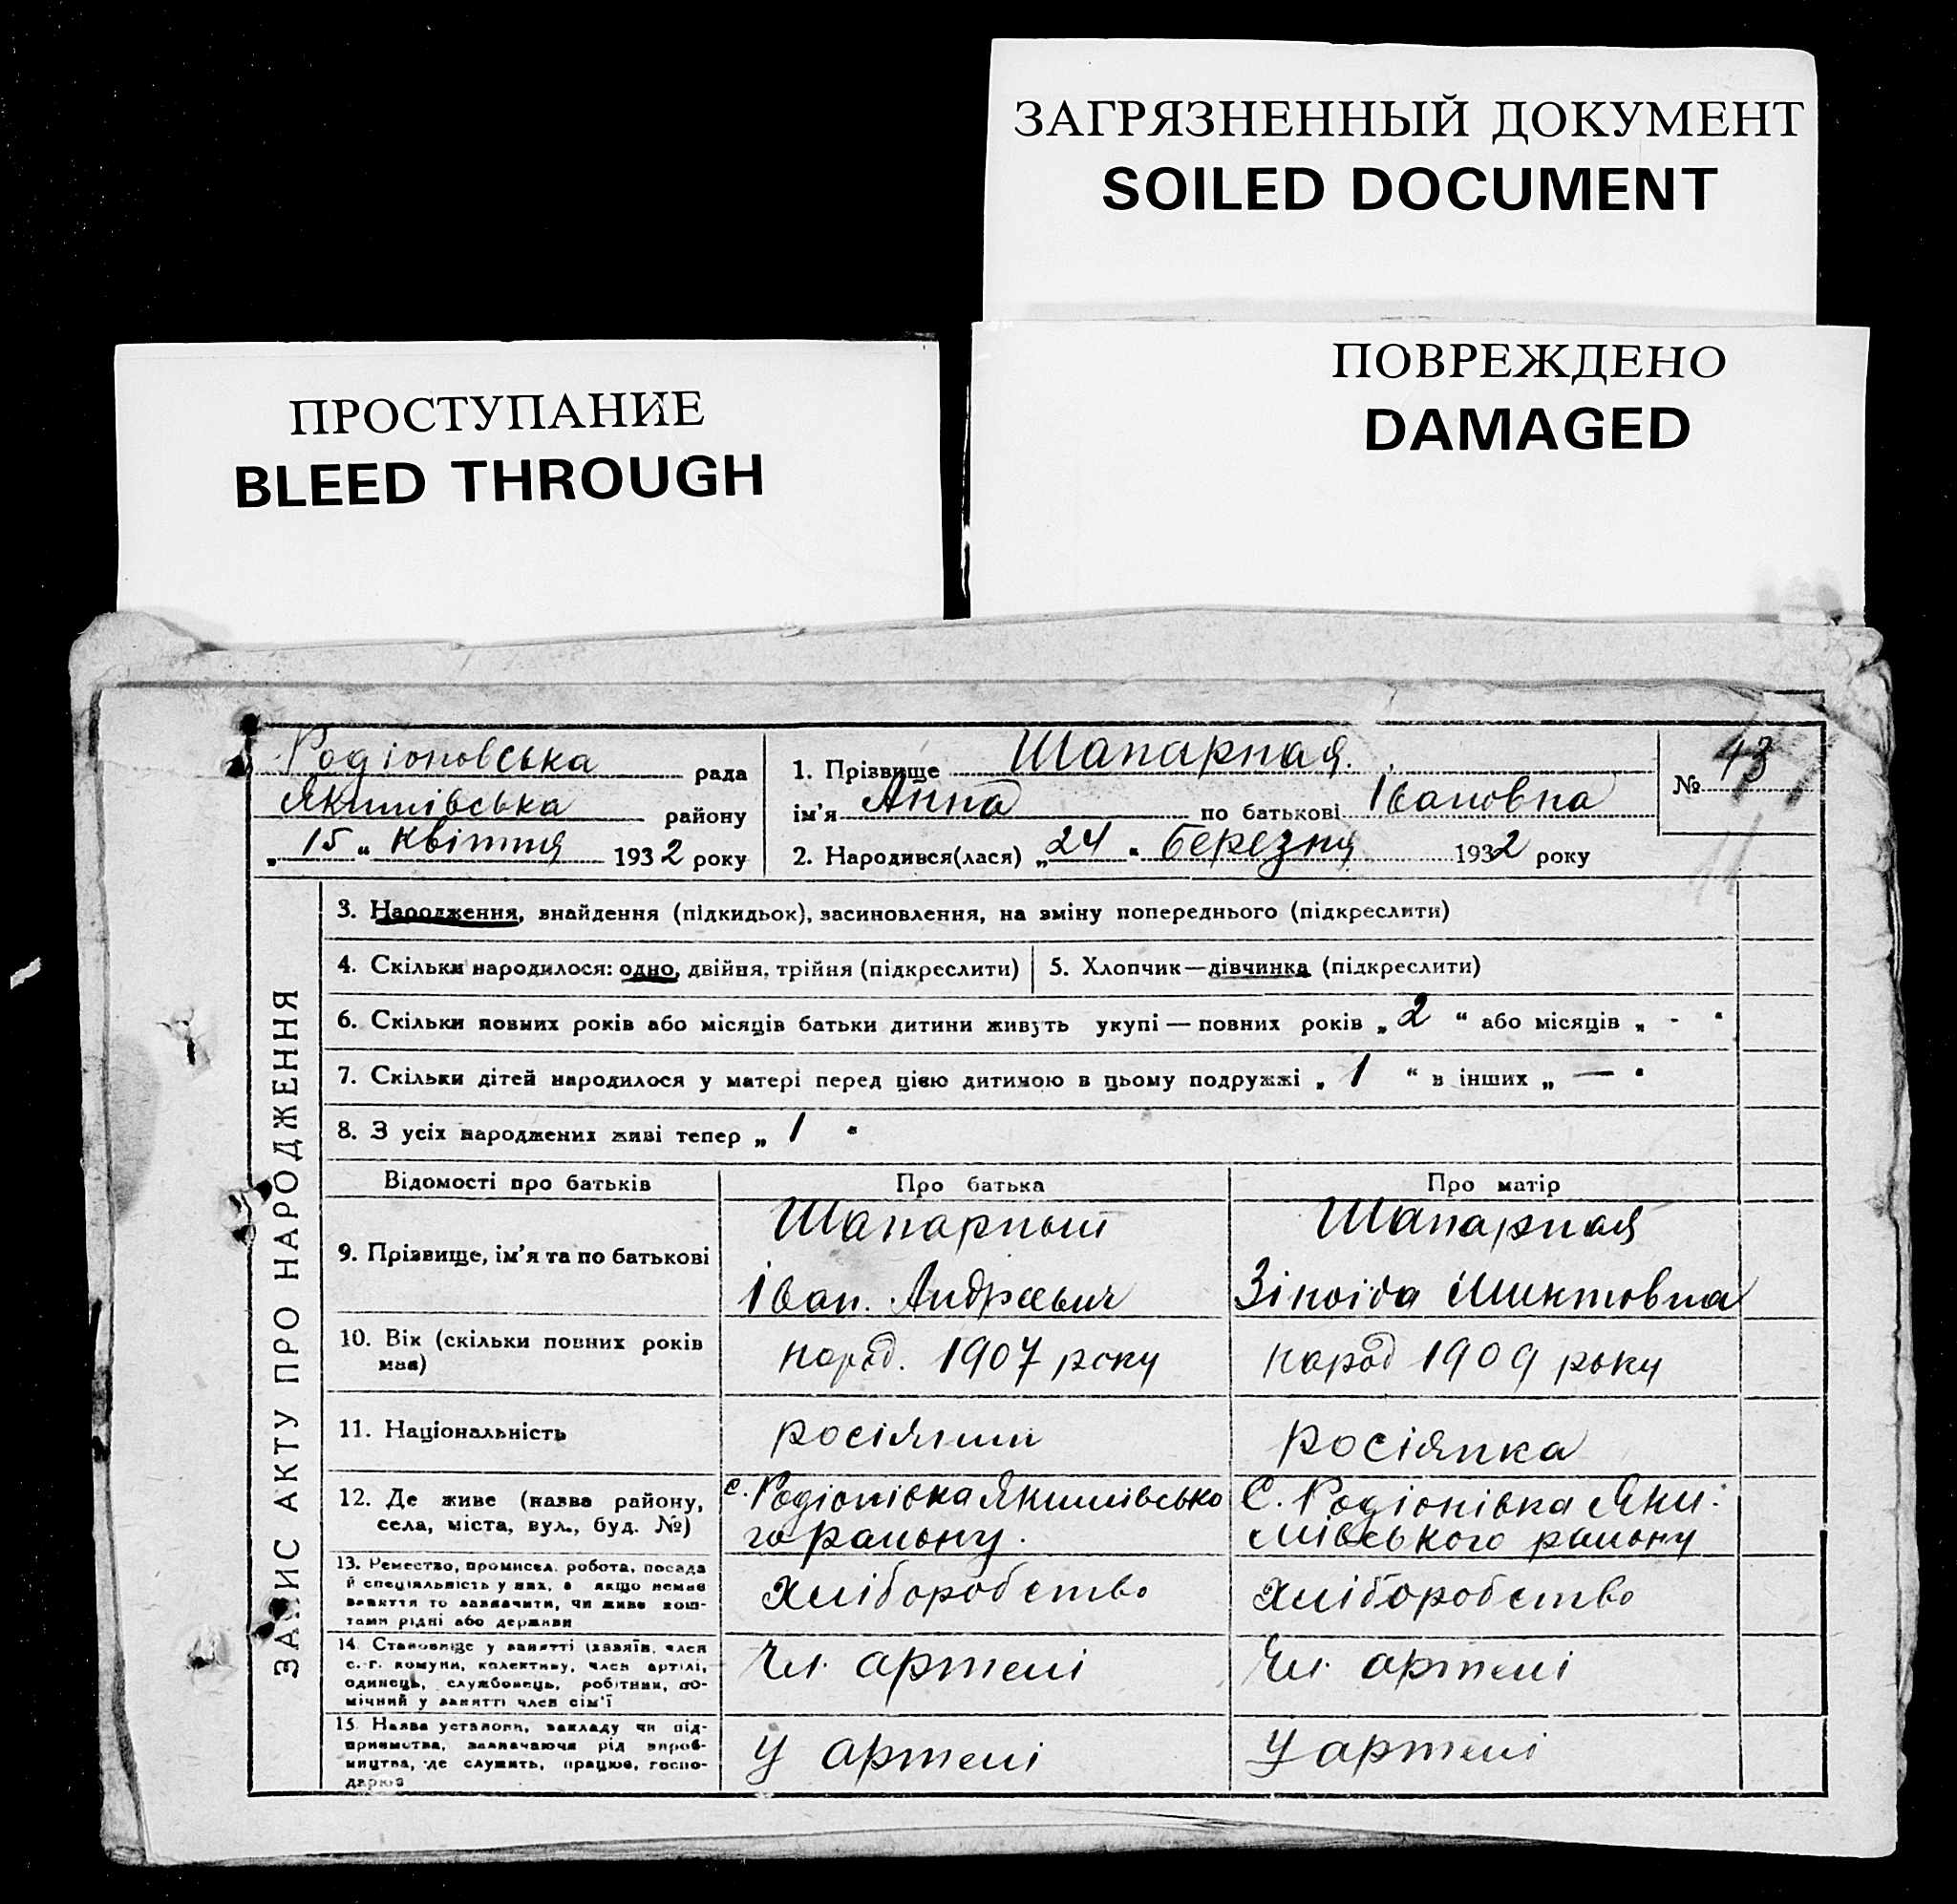 ЗАГРЯЗНЕННЫЙ ДОКУМЕНТ
SOILED DOCUMENT
ПОВРЕЖДЕНО
DAMAGED
ПРОСТУПАНИЕ
BLEED THROUGH
Родіоновська рада
Якимівська району
„15" квітня 1932 року
1. Прізвище Шапарная.
ім'я Анна по батькові Івановна
2. Народився(лася) „24" березня 1932 року
№ 43
ЗАПИС АКТУ ПРО НАРОДЖЕННЯ
3. Народження, знайдення (підкидьок), засиновлення, на зміну попереднього (підкреслити)
4. Скільки народилося: одно, двійня, трійня (підкреслити)
5. Хлопчик—дівчинка (підкреслити)
6. Скільки повних років або місяців батьки дитини живуть укупі — повних років „2" або місяців „-"
7. Скільки дітей народилося у матері перед цією дитиною в цьому подружжі „1" в інших „—"
8. З усіх народжених живі тепер „1"
Відомості про батьків
Про батька
Про матір
9. Прізвище, ім'я та по батькові
Шапарный
Іван. Андрєевич
Шапарная
Зіноіда Микитовна
10. Вік (скільки повних років має)
народ. 1907 року
народ 1909 року
11. Національність
росіянин
росіянка
12. Де живе (назва району,
села, міста, вул., буд. №)
с. Родіонівка Якимівсько
го району.
С. Родіонівка Яки-
мівського району
13. Ремество, промисел, робота, посада
й спеціяльність у них, а якщо немає
заняття то зазначити, чи живе кош-
тами рідні або держави
хліборобство
хліборобство
14. Становище у занятті (хазяїн, член
с.-г. комуни, колективу, член артілі,
одинець, службовець, робітник, по-
мічний у занятті член сім'ї
Чл. артелі
Чл. артелі
15. Назва установи, закладу чи під-
приємства, зазначаючи рід вироб-
ництва, де служить, працює, госпо-
дарює
У артелі
У артелі